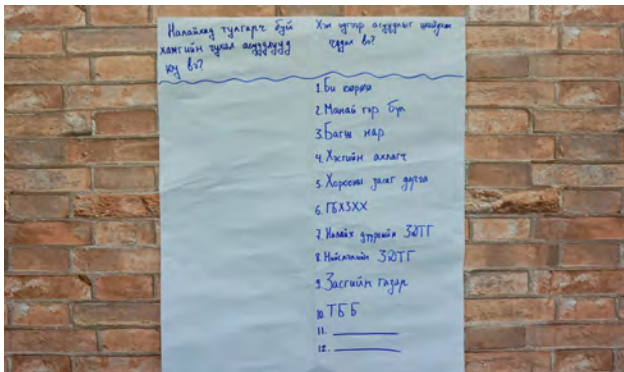 Налайхад тулгарч буй
хамгийн чухал асуудлууд
юу вэ?
Хэн эдгээр асуудлыг шийдэж
чадах вэ?
1. Би өөрөө
2. Манай гэр бүл
3. Багш нар
4. Хэсгийн ахлагч
5. Хорооны засаг дарга
6. ГБХЗХХ
7. Налайх дүүргийн ЗДТГ
8. Нийслэлийн ЗДТГ
9. Засгийн газар
10. ТББ
11.
12.